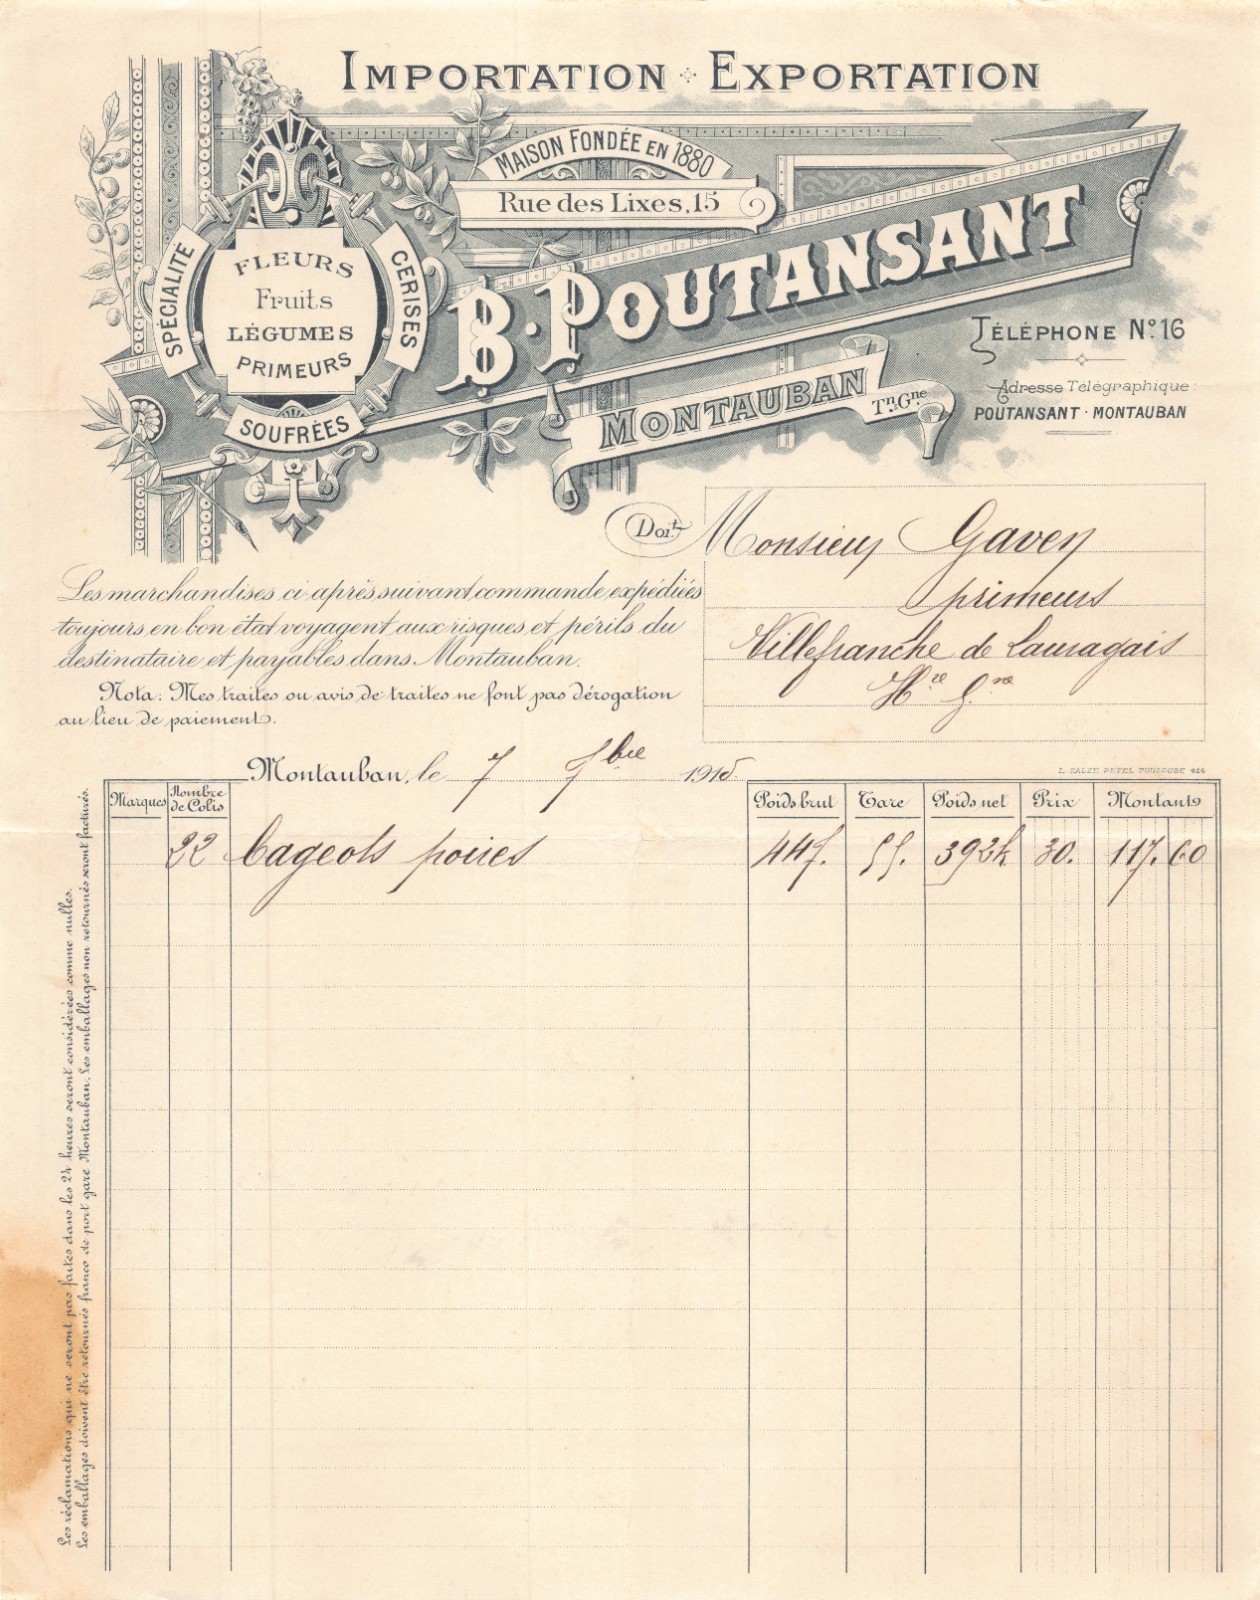 IMPORTATION EXPORTATION
MAISON FONDÉE EN 1880
Rue des Lixes, 15
SPÉCIALITÉ
CERISES
SOUFRÉES
FLEURS
Fruits
LÉGUMES
PRIMEURS
B. POUTANSANT
MONTAUBAN
Tn. Gne
TÉLÉPHONE No. 16
Adresse Télégraphique:
POUTANSANT - MONTAUBAN
Doit Monsieur Gaven
primeurs
Villefranche de Lauragais
Hte Gne
Les marchandises ci-après suivant commande, expédiées
toujours en bon état voyagent aux risques et périls du
destinataire et payables dans Montauban.
Nota: Mes traites ou avis de traites ne font pas dérogation
au lieu de paiement.
Montauban, le 7 7bre 1915
L. SALZE REPEL TOULOUSE 424
Marques Nombre de Colis Poids brut Tare Poids net Prix Montant
22 Cageots poires 447. 55. 392k 30. 117. 60
Les réclamations qui ne seront pas faites dans les 24 heures seront considérées comme nulles.
Les emballages doivent être retournés franco de port gare Montauban. Les emballages non retournés seront facturés.